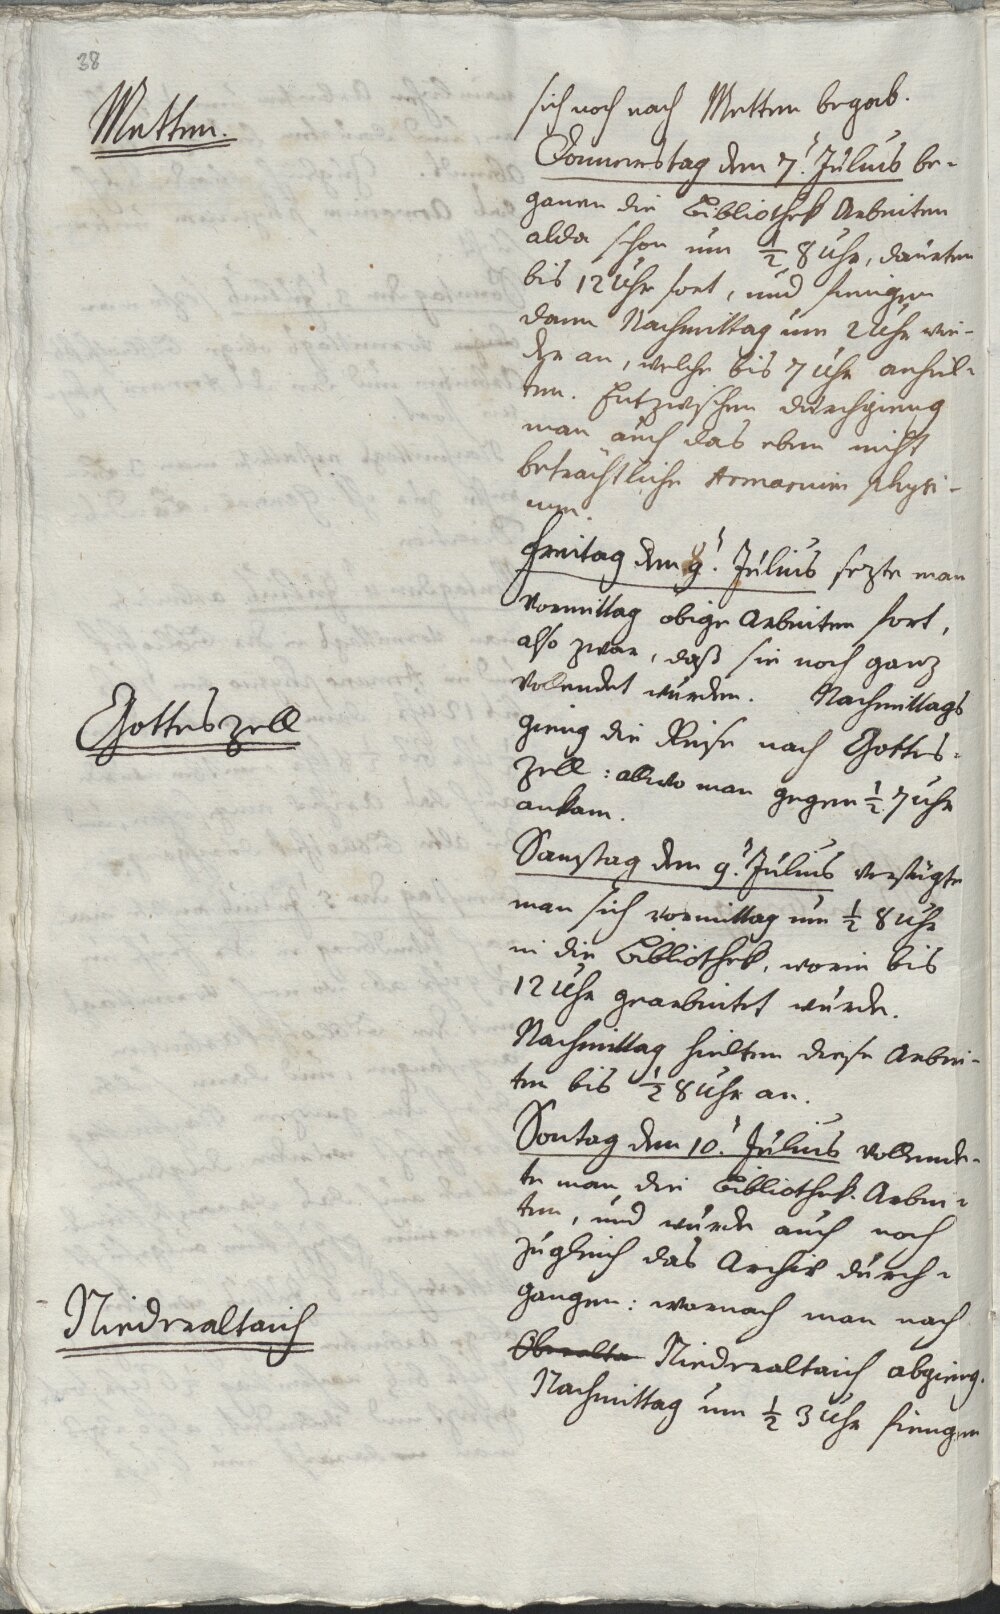 38
Metten.
sich noch nach Metten begab.
Donnerstag den 7.ᵗ Julius be-
ganen die Bibliothek Arbeiten
alda schon um ½ 8 Uhr, dauerten
bis 12 Uhr fort, und fiengen
dann Nachmittag um 2 Uhr wie-
der an, welche bis 7 Uhr anhiel-
ten. Entzwischen durchgieng
man auch das eben nicht
beträchtliche Armarium physi-
cum.
Freitag den 8.ᵗ Julius sezte man
Vormittag obige Arbeiten fort,
also zwar, daß sie noch ganz
vollendet wurden. Nachmittags
Gotteszell
gieng die Reise nach Gottes-
zell: allwo man gegen ½ 7 Uhr
ankam.
Samstag den 9.ᵗ Julius verfügte
man sich vormittag um ½ 8 Uhr
in die Bibliothek, worin bis
12 Uhr gearbeitet wurde.
Nachmittag hielten diese Arbei-
ten bis ½ 8 Uhr an.
Sontag den 10.ᵗ Julius vollende-
te man die Bibliothek-Arbei-
ten, und wurde auch noch
zugleich das Archiv durch-
gangen: wornach man nach
Niederaltaich
Oberalta Niederaltaich abgieng.
Nachmittag um ½ 3 Uhr fiengen